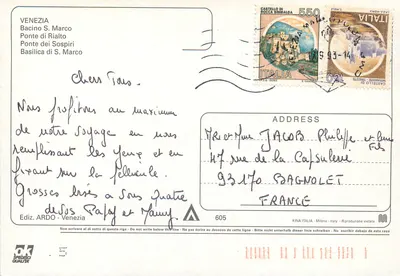 VENEZIA
Bacino S. Marco
Ponte di Rialto
Ponte dei Sospiri
Basilica di S. Marco
CASTELLO DI
ROCCA SINIBALDA
550
ITALIA
93-14
Chers Tous.
Nous profitons au maximum
de notre voyage en nous
remplissant les yeux et en
fixant sur la pellicule.
Grosses bises à vous quatre
de vos Papy et Mamy.
ADDRESS
Mr et Mme JACOB Philippe et leur
Fils
47 rue de la Capsulerie
93170 BAGNOLET
FRANCE
Ediz. ARDO - Venezia
605
KINA ITALIA - Milano - Italy - Riproduzione vietata
5